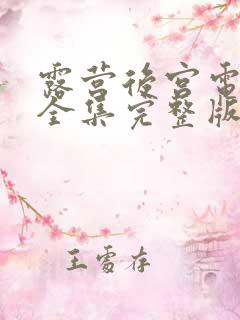 露营后宫电
全集完整版
王雷存